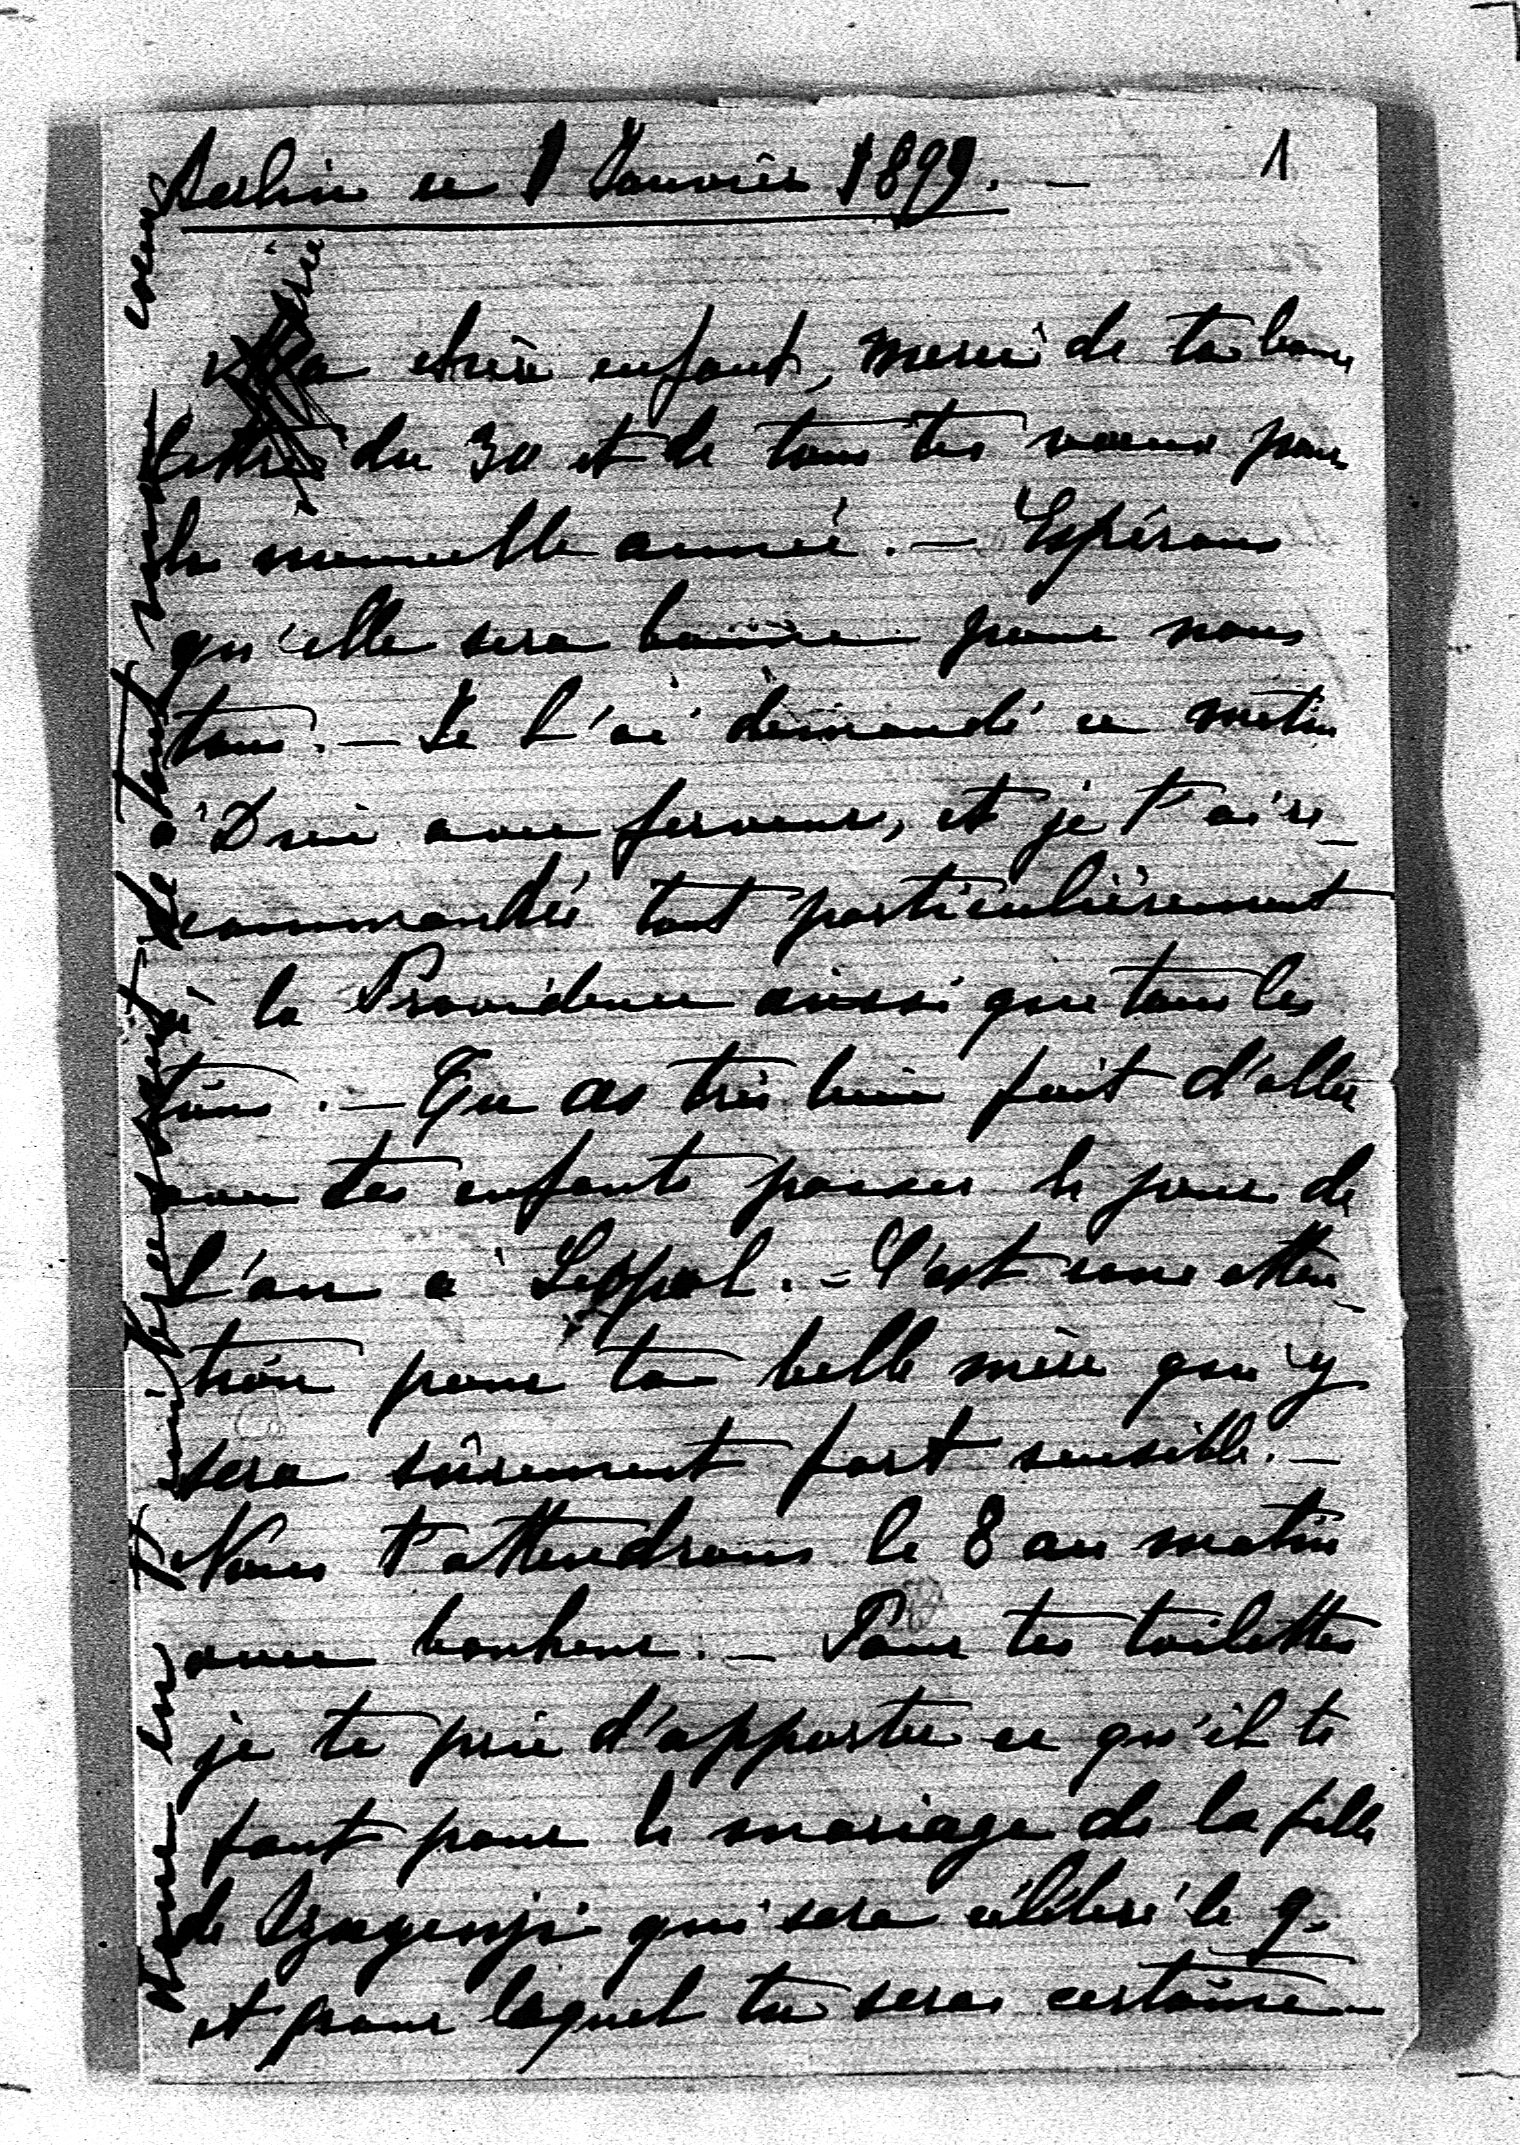 Berlin ce 1 Janvier 1899. —
1
Ma chère enfant, merci de ta bonne
lettre du 30 et de tous tes voeux pour
la nouvelle année. — Espérons
qu'elle sera bonne pour nous
tous. — Je l'ai demandé ce matin
à Dieu avec ferveur, et je t'ai re-
commandée tout particulièrement
à la Providence ainsi que tous les
tiens. — Tu as très bien fait d'aller
avec tes enfants passer le jour de
l'an à . — C'est une atten-
tion pour ta belle mère qui y
sera sûrement fort sensible. —
Nous t'attendrons le 8 au matin
avec bonheur. — Pour tes toilettes
je te prie d'apporter ce qu'il te
faut pour le mariage de la fille
de qui sera célébré le 9.
et pour lequel tu seras certaine-